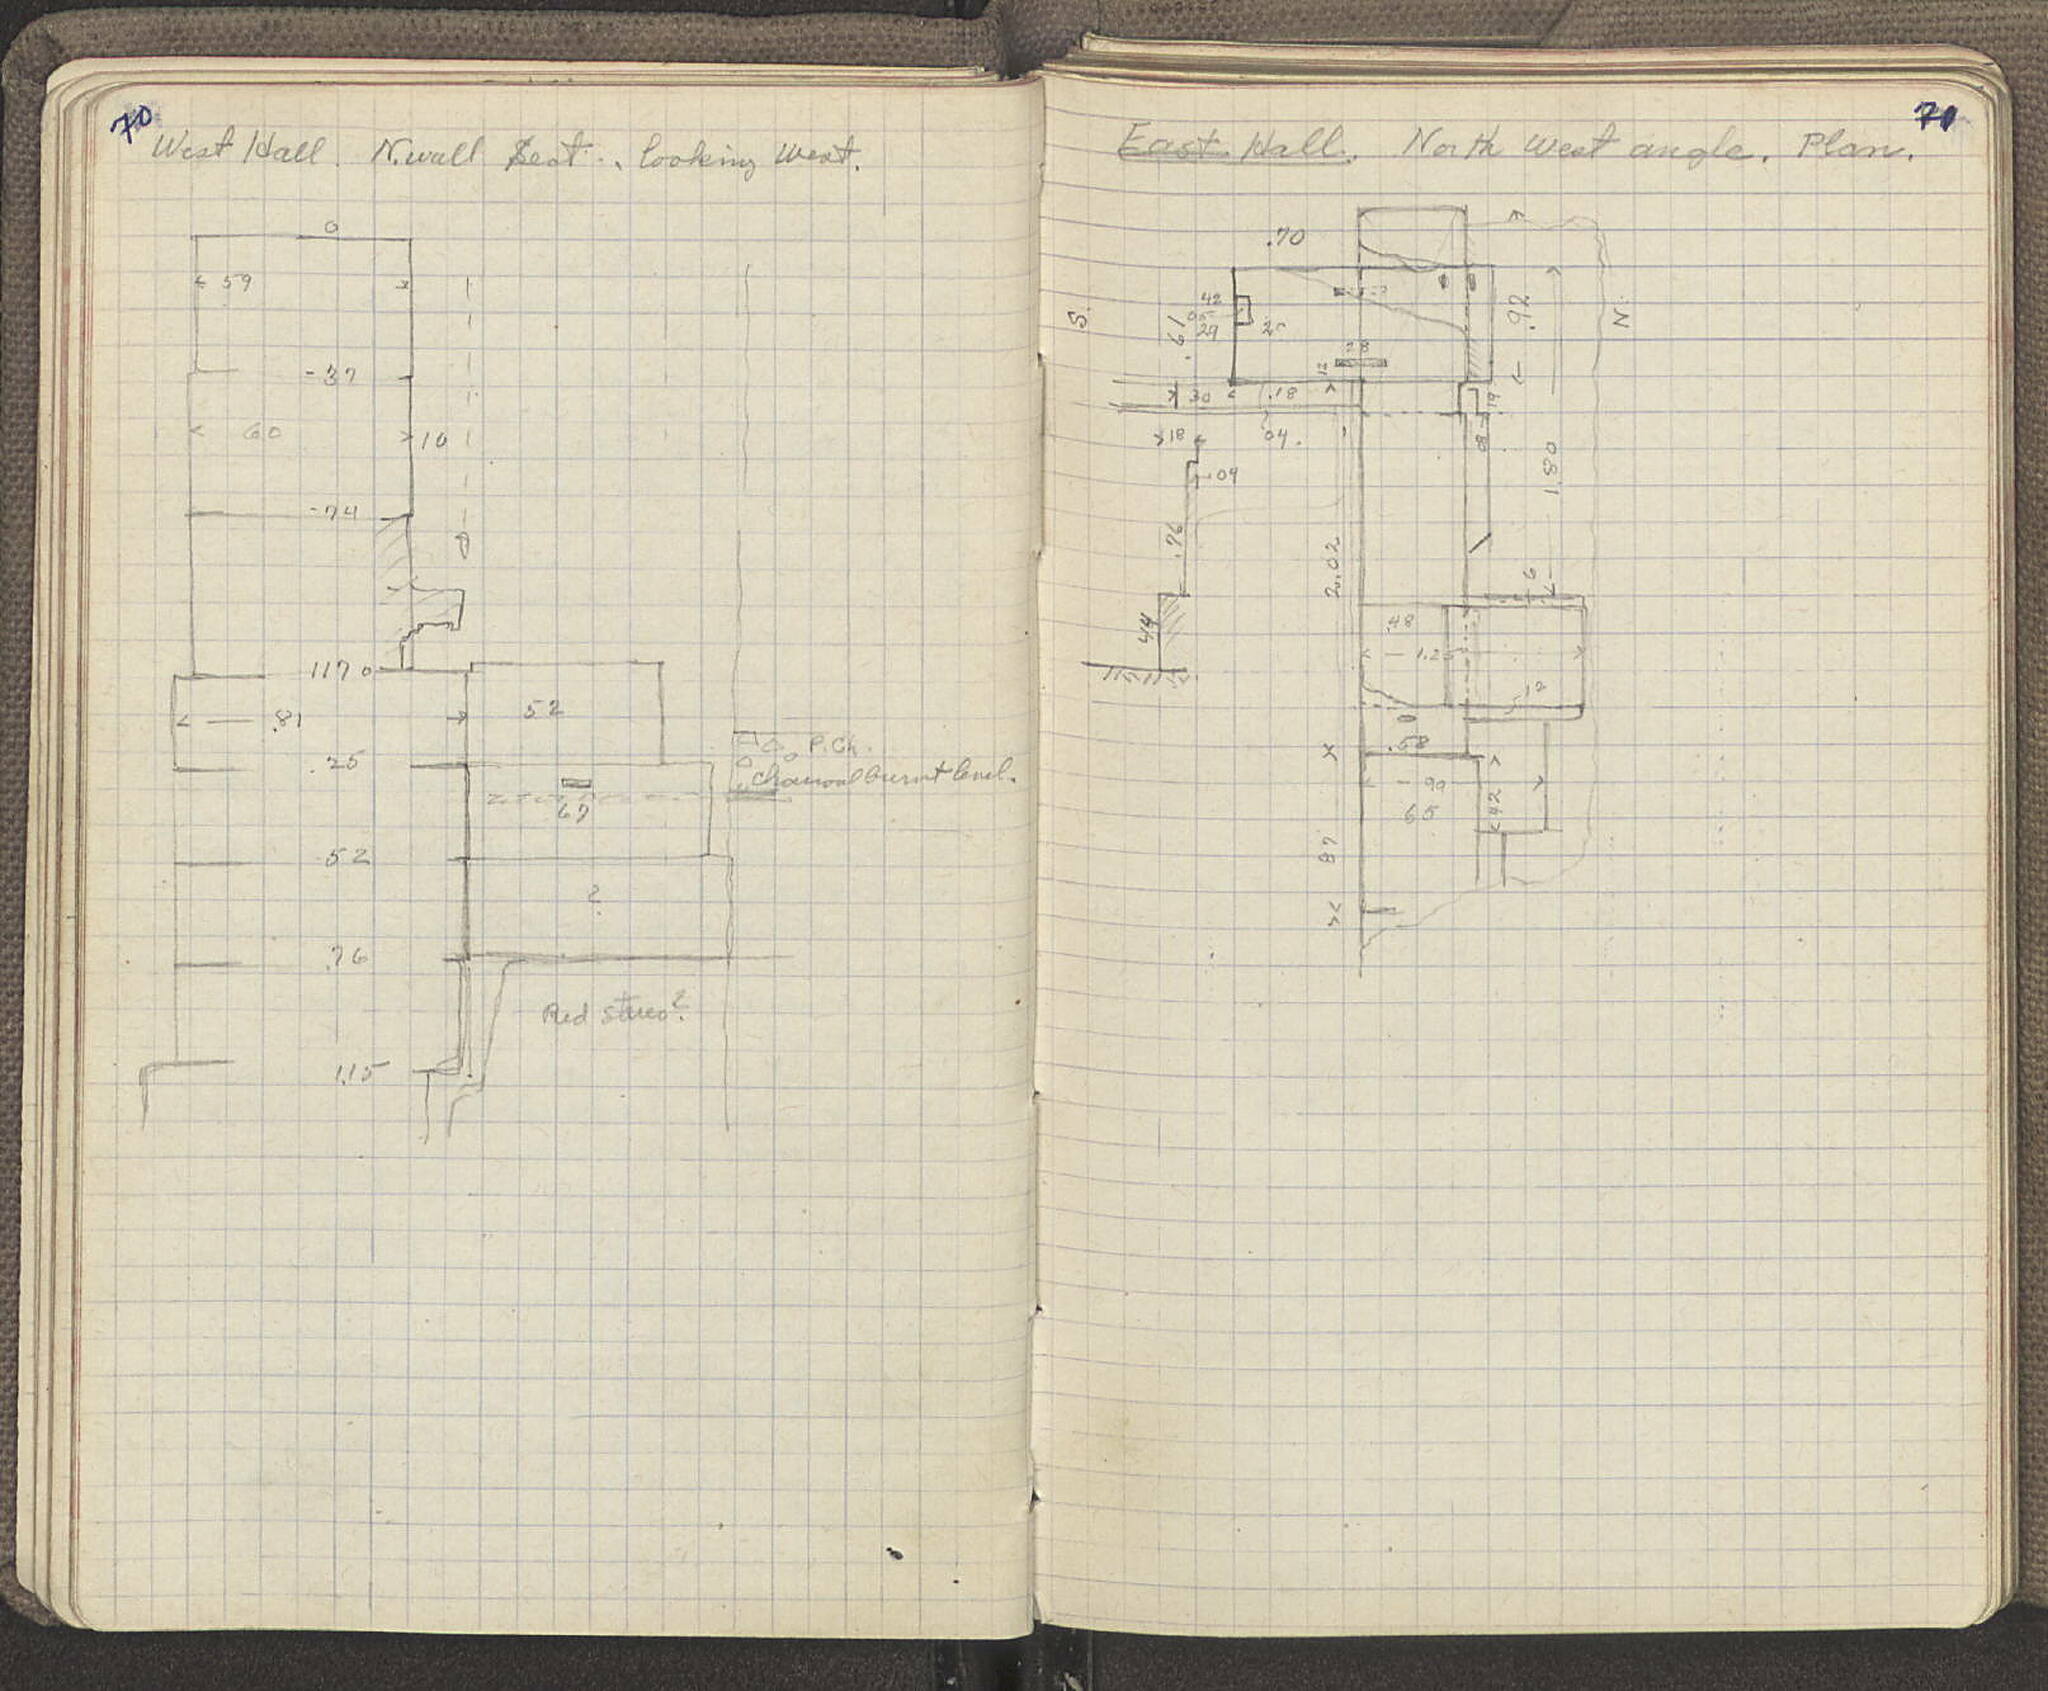 70
West Hall. N. wall Sect., looking West.
0
59
-37
60
10
-74
117 0
52
.81
P. Ch.
.25
Charcoal burnt level.
67
52
?
.76
Red stuco?
1.15
71
East Hall. North West angle. Plan.
.70
S.
N.
.61
42
05
29
.92
28
12
30
.18
19
18
04.
08
09
1.80
.76
2.02
6
44
.48
1.25
12
.58
90
65
42
87